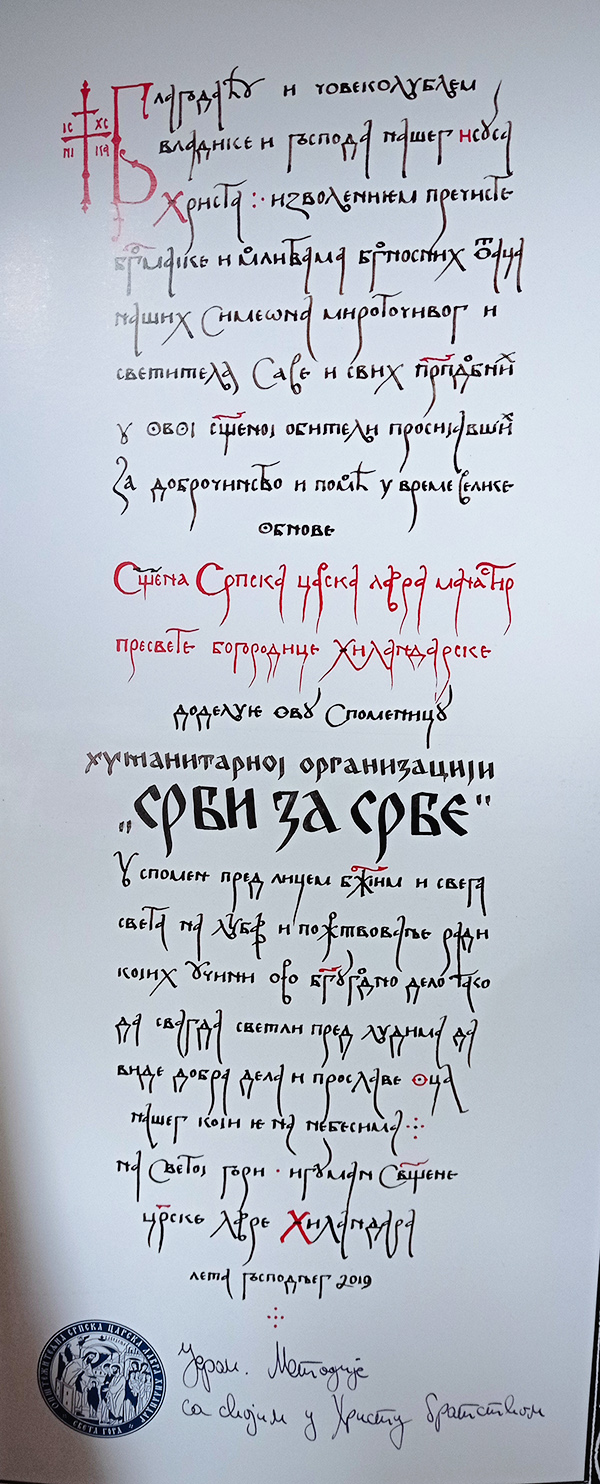 Благъдаћу и човекољубљем
владике и гъспода нашег Исуса
Христа : · изволенијем пречисте
бгмаике и млитвама бгносних ѿаца
наших Симеѡна мироточивог и
светитеља Саве и свих прпдбних
у овој сщеној обитељи просијавших
За доброчинство и помћ у време велике
обнове
Сщена Српска царска лавра манастир
пресвете богородице Хиландарске
доделује ову Споменицу
хуманитарној организацији
„СРБИ ЗА СРБЕ"
У спомен пред лицем бжіим и свега
света на љубав и пожртвовање ради
којих учини ово бгугодно дело тако
да свагда светли пред људима да
виде добра дела и прославе оца
нашег који је на небесима
на Светој гори · игуман Свщене
црске лавре Хиландара
лета гъсподњег 2019
ОПШТЕЖИТЕЉНА СРПСКА ЦАРСКА ЛАВРА ХИЛАНДАР
СВЕТА ГОРА
Јером. Методије
са својим у Христу братством
ІС ХС
НІ КА